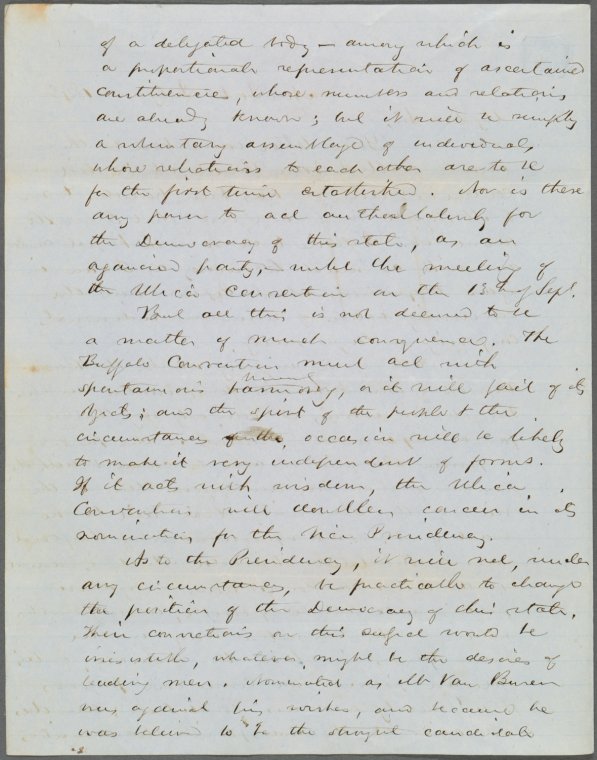 of a delegated body — among which is
a proportionate representation of ascertained
constituencies, whose numbers and relations
are already known; but it will be simply
a voluntary assemblage of individuals,
whose relations to each other are to be
for the first time established. Nor is there
any power to act authoritatively for
the Democracy of this state, as an
organized party, until the meeting of
the Utica Convention on the 13th of Sept.
But all this is not deemed to be
a matter of much consequence. The
Buffalo Convention must act with
spontaneous harmony, or it will fail of its
objects; and the spirit of the people & the
circumstances of the occasion will be likely
to make it very independent of forms.
If it acts with wisdom, the Utica
Convention will doubtless concur in its
nomination for the Vice Presidency.
As to the Presidency, it will not, under
any circumstances, be practicable to change
the position of the Democracy of this state.
Their convictions on this subject would be
irresistible, whatever might be the desires of
leading men. Nominated as Mr Van Buren
was against his wishes, and because he
was believed to be the strongest candidate